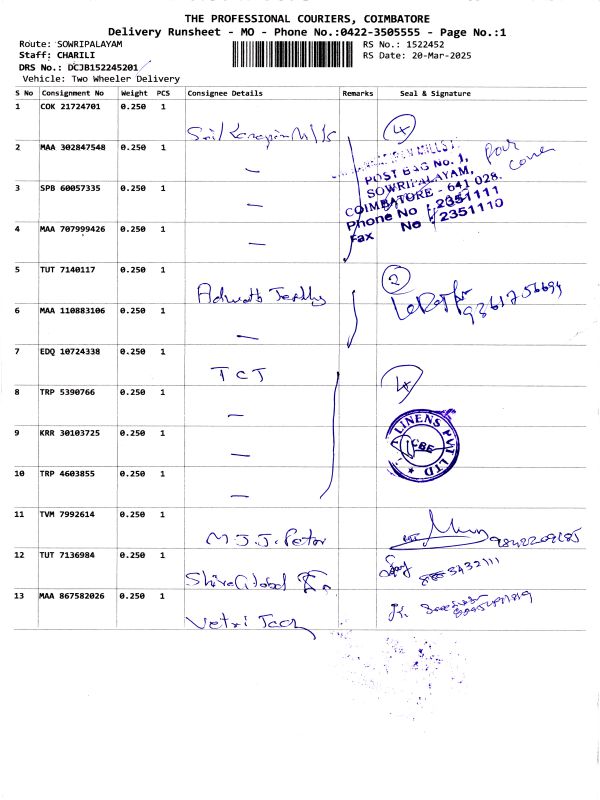 THE PROFESSIONAL COURIERS, COIMBATORE
Delivery Runsheet - MO - Phone No.:0422-3505555 - Page No.:1
Route: SOWRIPALAYAM RS No.: 1522452
Staff: CHARILI RS Date: 20-Mar-2025
DRS No.: DCJB152245201
Vehicle: Two Wheeler Delivery
S No Consignment No Weight PCS Consignee Details Remarks Seal & Signature
1 COK 21724701 0.250 1
4
2 MAA 302847548 0.250 1 —
POST BAG No. 1,
SOWRIPALAYAM,
COIMBATORE - 641 028.
Phone No : 2351111
Fax No : 2351110
3 SPB 60057335 0.250 1 —
4 MAA 707999426 0.250 1 —
5 TUT 7140117 0.250 1
2
6 MAA 110883106 0.250 1 —
7 EDQ 10724338 0.250 1 TCT
4
8 TRP 5390766 0.250 1 —
9 KRR 30103725 0.250 1 —
LINENS PVT LTD
CBE
10 TRP 4603855 0.250 1 —
11 TVM 7992614 0.250 1 M.J.J. Peter
12 TUT 7136984 0.250 1 Shiva Global
13 MAA 867582026 0.250 1 Vetri Tech